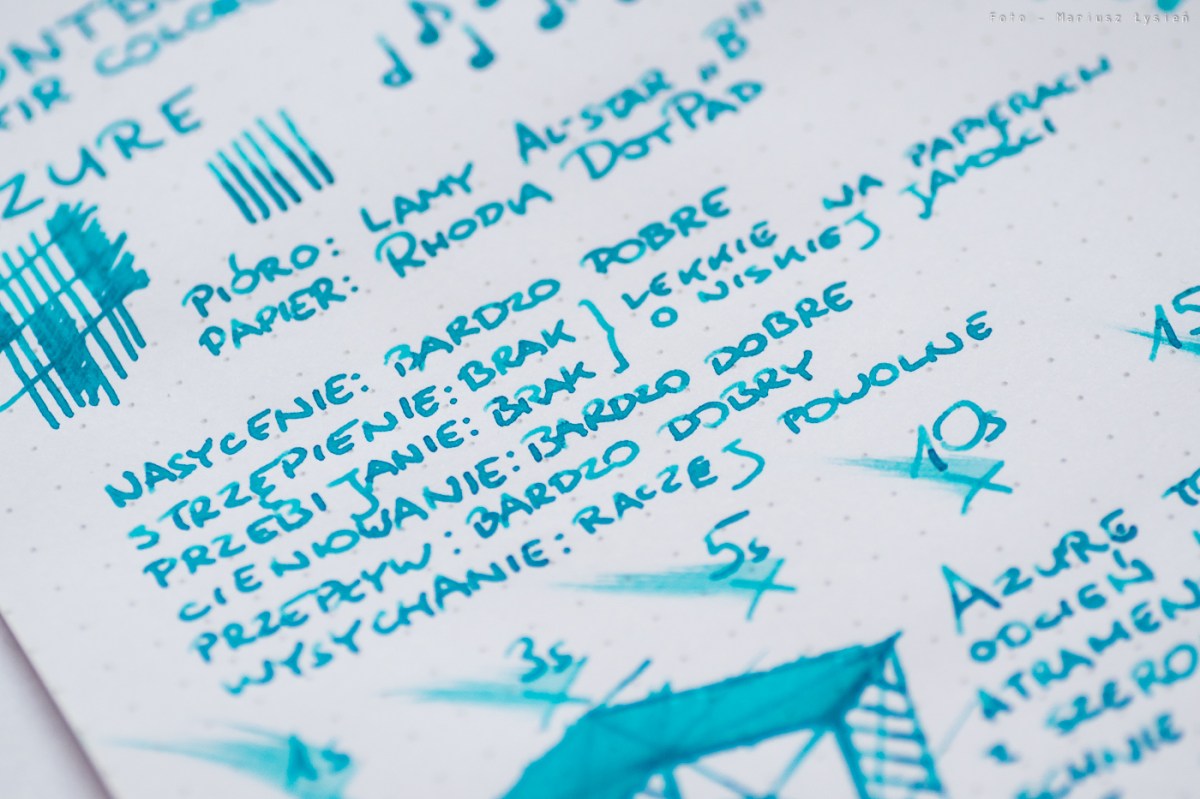 Foto - Mariusz Łysień
AZURE
PIÓRO: LAMY AL-STAR „B”
PAPIER: RHODIA DOTPAD
NASYCENIE: BARDZO DOBRE
STRZĘPIENIE: BRAK } LEKKIE NA PAPIERACH
PRZEBIJANIE: BRAK } O NISKIEJ JAKOŚCI
CIENIOWANIE: BARDZO DOBRE
PRZEPŁYW: BARDZO DOBRY
WYSYCHANIE: RACZEJ POWOLNE
15
10s
5s
3s
1s
AZURE
ODCIEŃ
ATRAMEN
Z SZERO